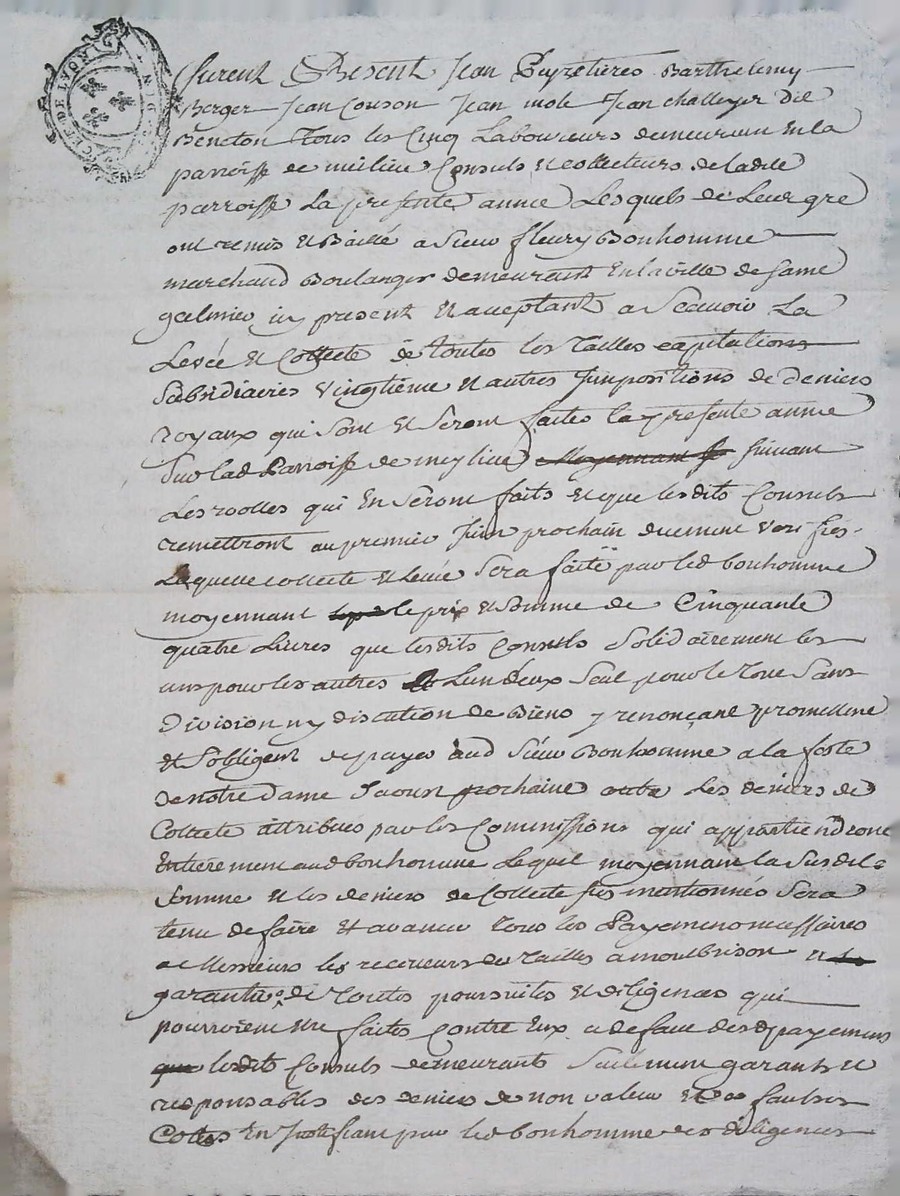 furent Presents Jean Peyretieres Barthelemy
Berger Jean Couson Jean mole Jean challeyer dit
Beneton Tous les Cinq Laboureurs demeurant En la
parroisse de meilieu Consuls et collecteurs de ladite
parroisse La presente année Lesquels de Leur gré
ont remis et Baillé a Sieur fleury Bonhomme
marchand Boulanger demeurant En la ville de Saint
galmier icy present et acceptant a Scavoir La
Levée et Collecte de toutes les Tailles capitations
Subsidiaires vingtieme et autres Impositions de deniers
royaux qui Sont et Seront faites la presente année
Sur lad Parroisse de meylieu suivant
Les roolles qui En Seront faits et que lesdits Consuls
remettront au premier Juin prochain duement veriffiés
Laquelle collecte et Levée Sera faite par led bonhomme
moyennant le prix et Somme de Cinquante
quatre Livres que lesdits Consuls Solidairement les
uns pour les autres L'un d'eux Seul pour le Tout Sans
Division ny discution de Biens y renonçant promettent
et S'obligent de payer aud Sieur Bonhomme a la feste
de notre dame d'aoust prochaine outre Les deniers de
Collecte attribues par les Commissions qui appartiendront
Entierement aud bonhomme Lequel moyennant la Susdite
Somme et les deniers de Collecte sus mentionnés Sera
tenu de faire et avancer Tous les Payements necessaires
a Messieurs les receveurs des Tailles a montbrison et
garantir de Toutes poursuites et diligences qui
pourroient etre faites Contre Eux a defaut desd payements
lesdits Consuls demeurants Seulement garants et
responsables des deniers de non valeur et de fausses
Cottes En Justiffiant par led bonhomme des diligences